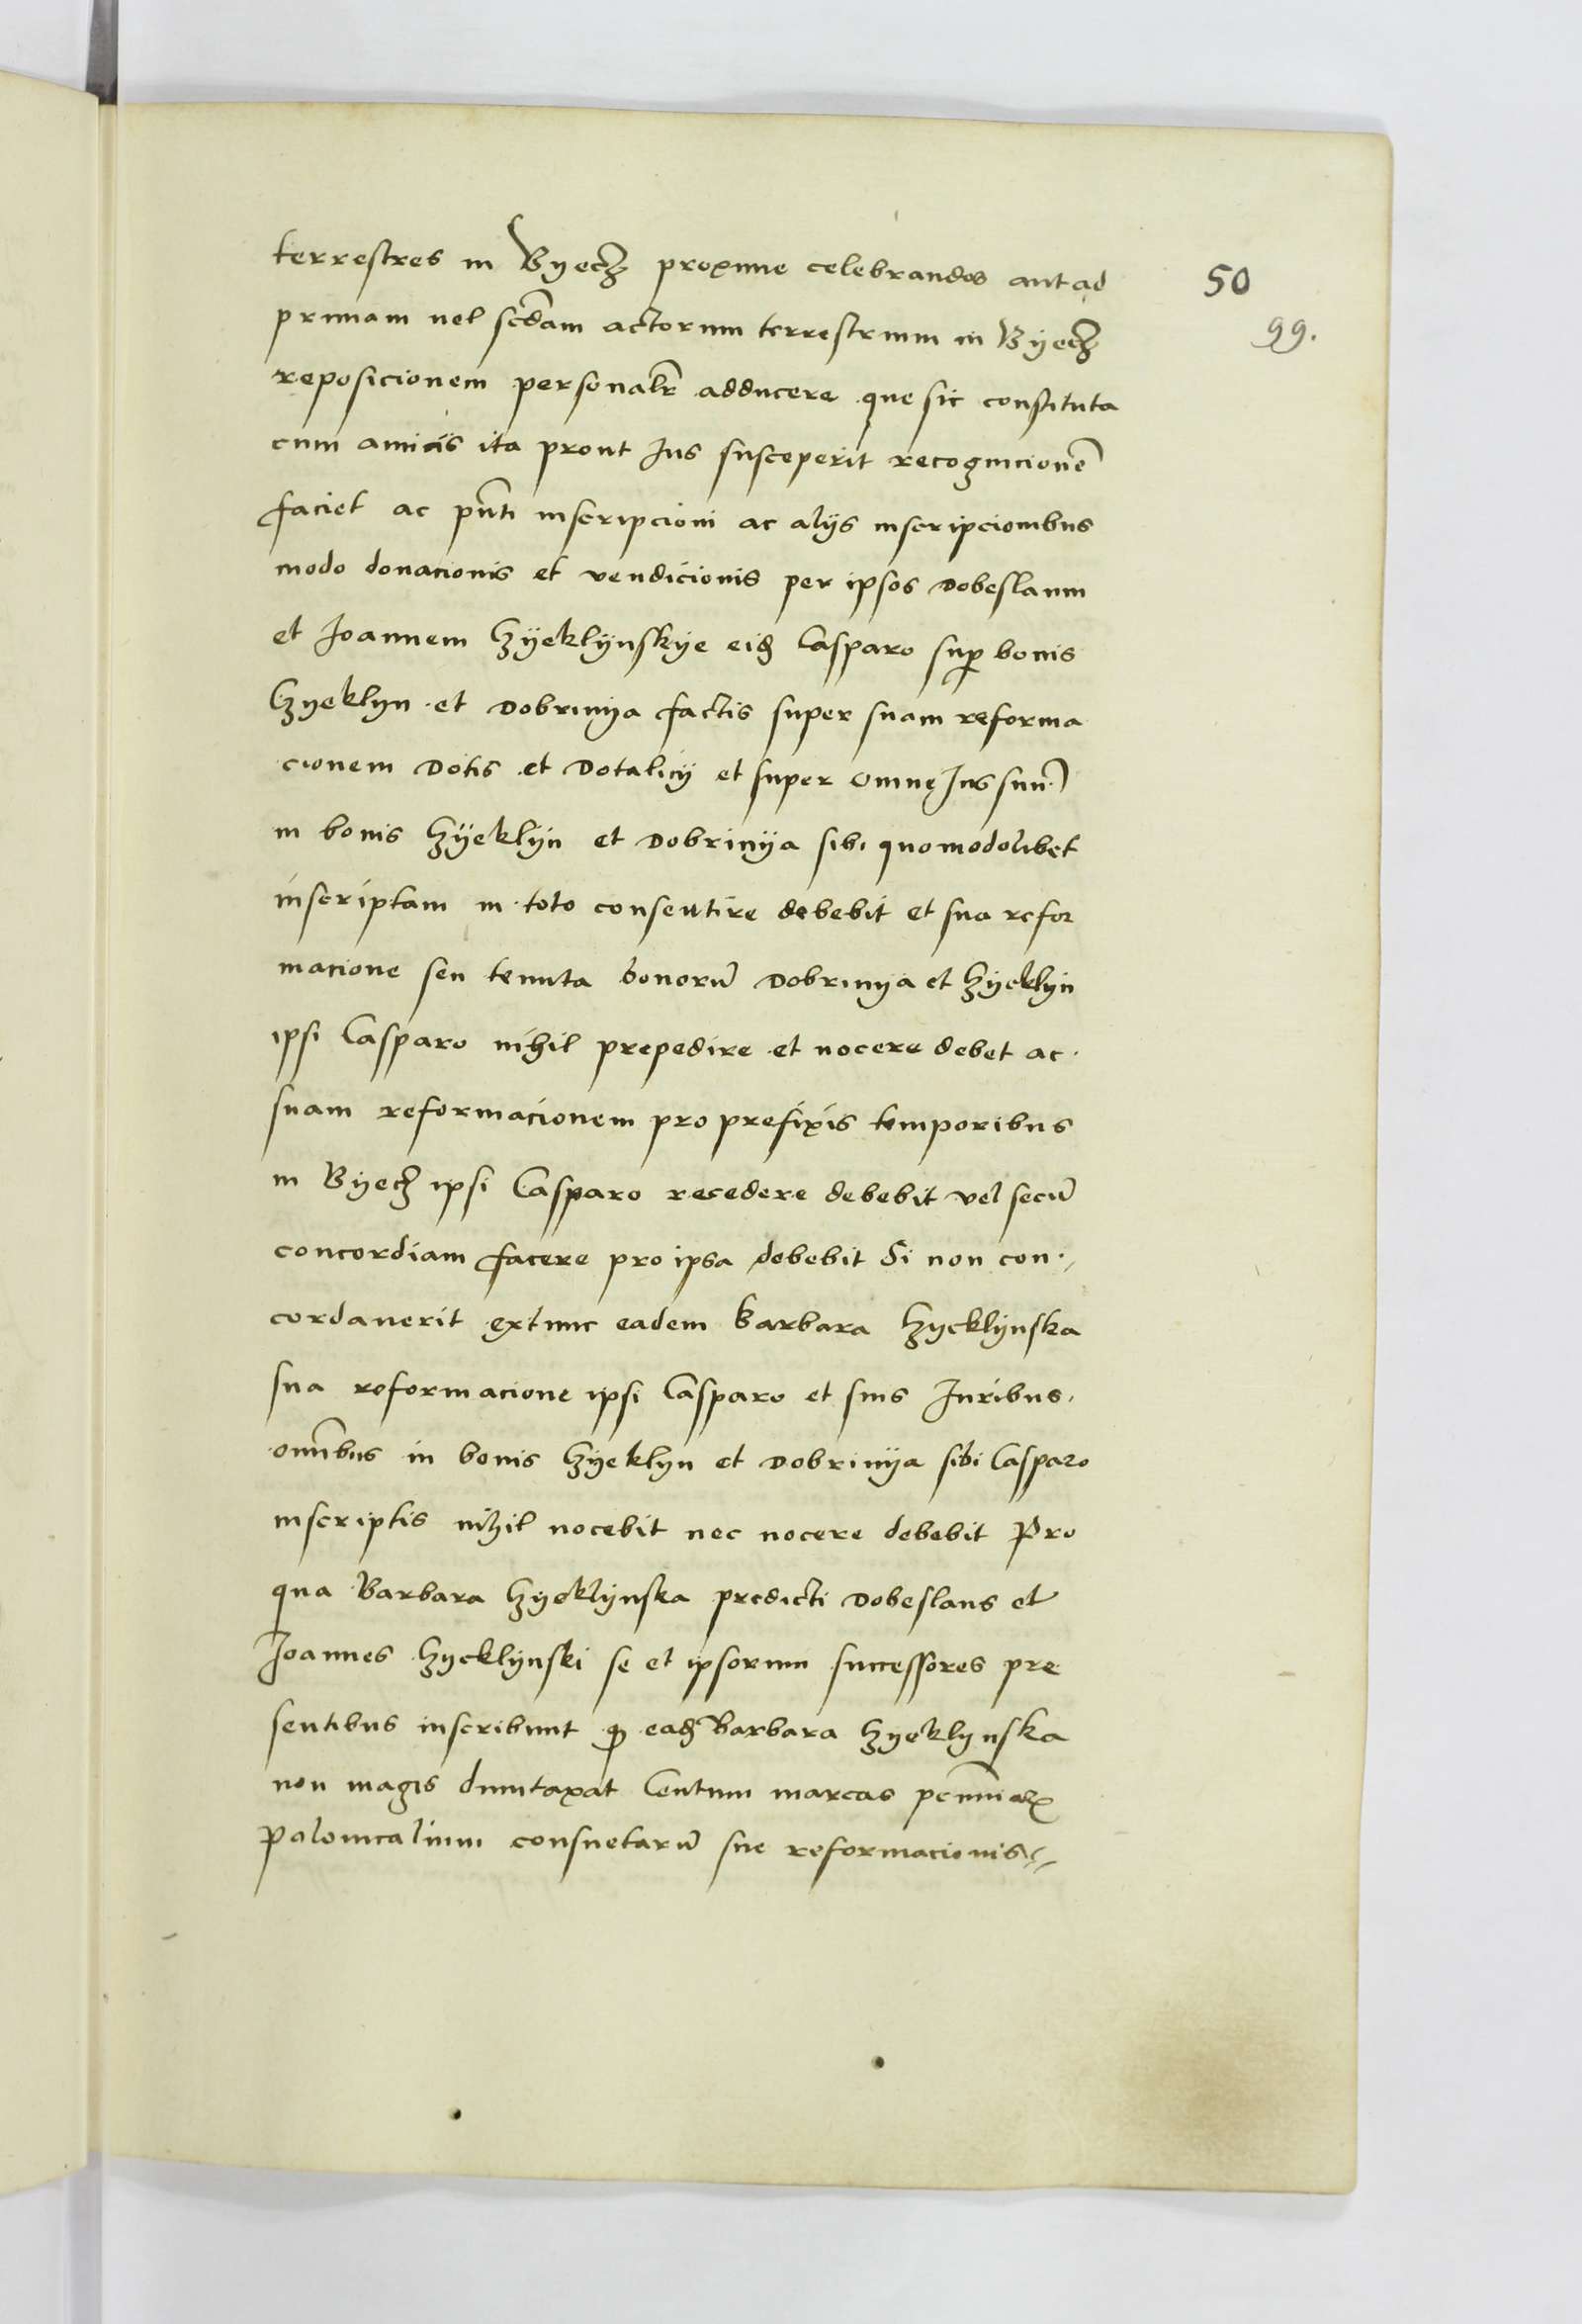 terrestres in Byecz proxime celebrandos aut ad
50
primam vel scdam actorum terrestrium in Byecz
99.
reposicionem personalr adducere que sic constituta
cum amicis ita prout Jus susceperit recognicionē
faciet ac pnti inscripcioni ac alijs inscripcionibus
modo donacionis et vendicionis per ipsos Dobeslaum
et Joannem Czyeklynskye eidē Casparo sup bonis
Czyeklyn et Dobrinya factis super suam reforma
cionem Dotis et Dotalicij et super omne Jus suū
in bonis Czyeklyn et Dobrinya sibi quomodolibet
inscriptam in toto consentire debebit et sua refor
macione seu tenuta bonorū Dobrinya et Czyeklyn
ipsi Casparo nihil prepedire et nocere debet ac
suam reformacionem pro prefixis temporibus
in Byecz ipsi Casparo recedere debebit vel secū
concordiam facere pro ipsa debebit Si non con
cordauerit extunc eadem barbara Czyeklynska
sua reformacione ipsi Casparo et suis Juribus
omībus in bonis Czyeklyn et Dobrinya sibi Casparo
inscriptis nihil nocebit nec nocere debebit Pro
qua Barbara Czyeklynska predicti Dobeslaus et
Joannes Czyeklynski se et ipsorum successores pre
sentibus inscribunt eadē Barbara Czyeklynska
non magis dumtaxat Centum marcas pecuniarꝝ
Polonicalium consuetarū sue reformacionis